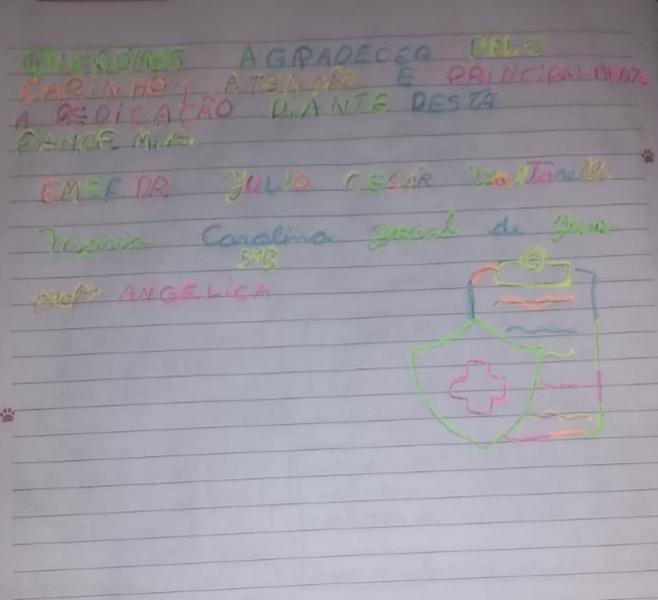 QUEROMOS AGRADECER PELO
CARINHO, ATENÇÃO E PRINCIPALMENTE
A DEDICAÇÃO DIANTE DESTA
PANDEMIA.
EMEF DR JULIO CESAR
Carolina de Jesus
5ºB
profª ANGELICA